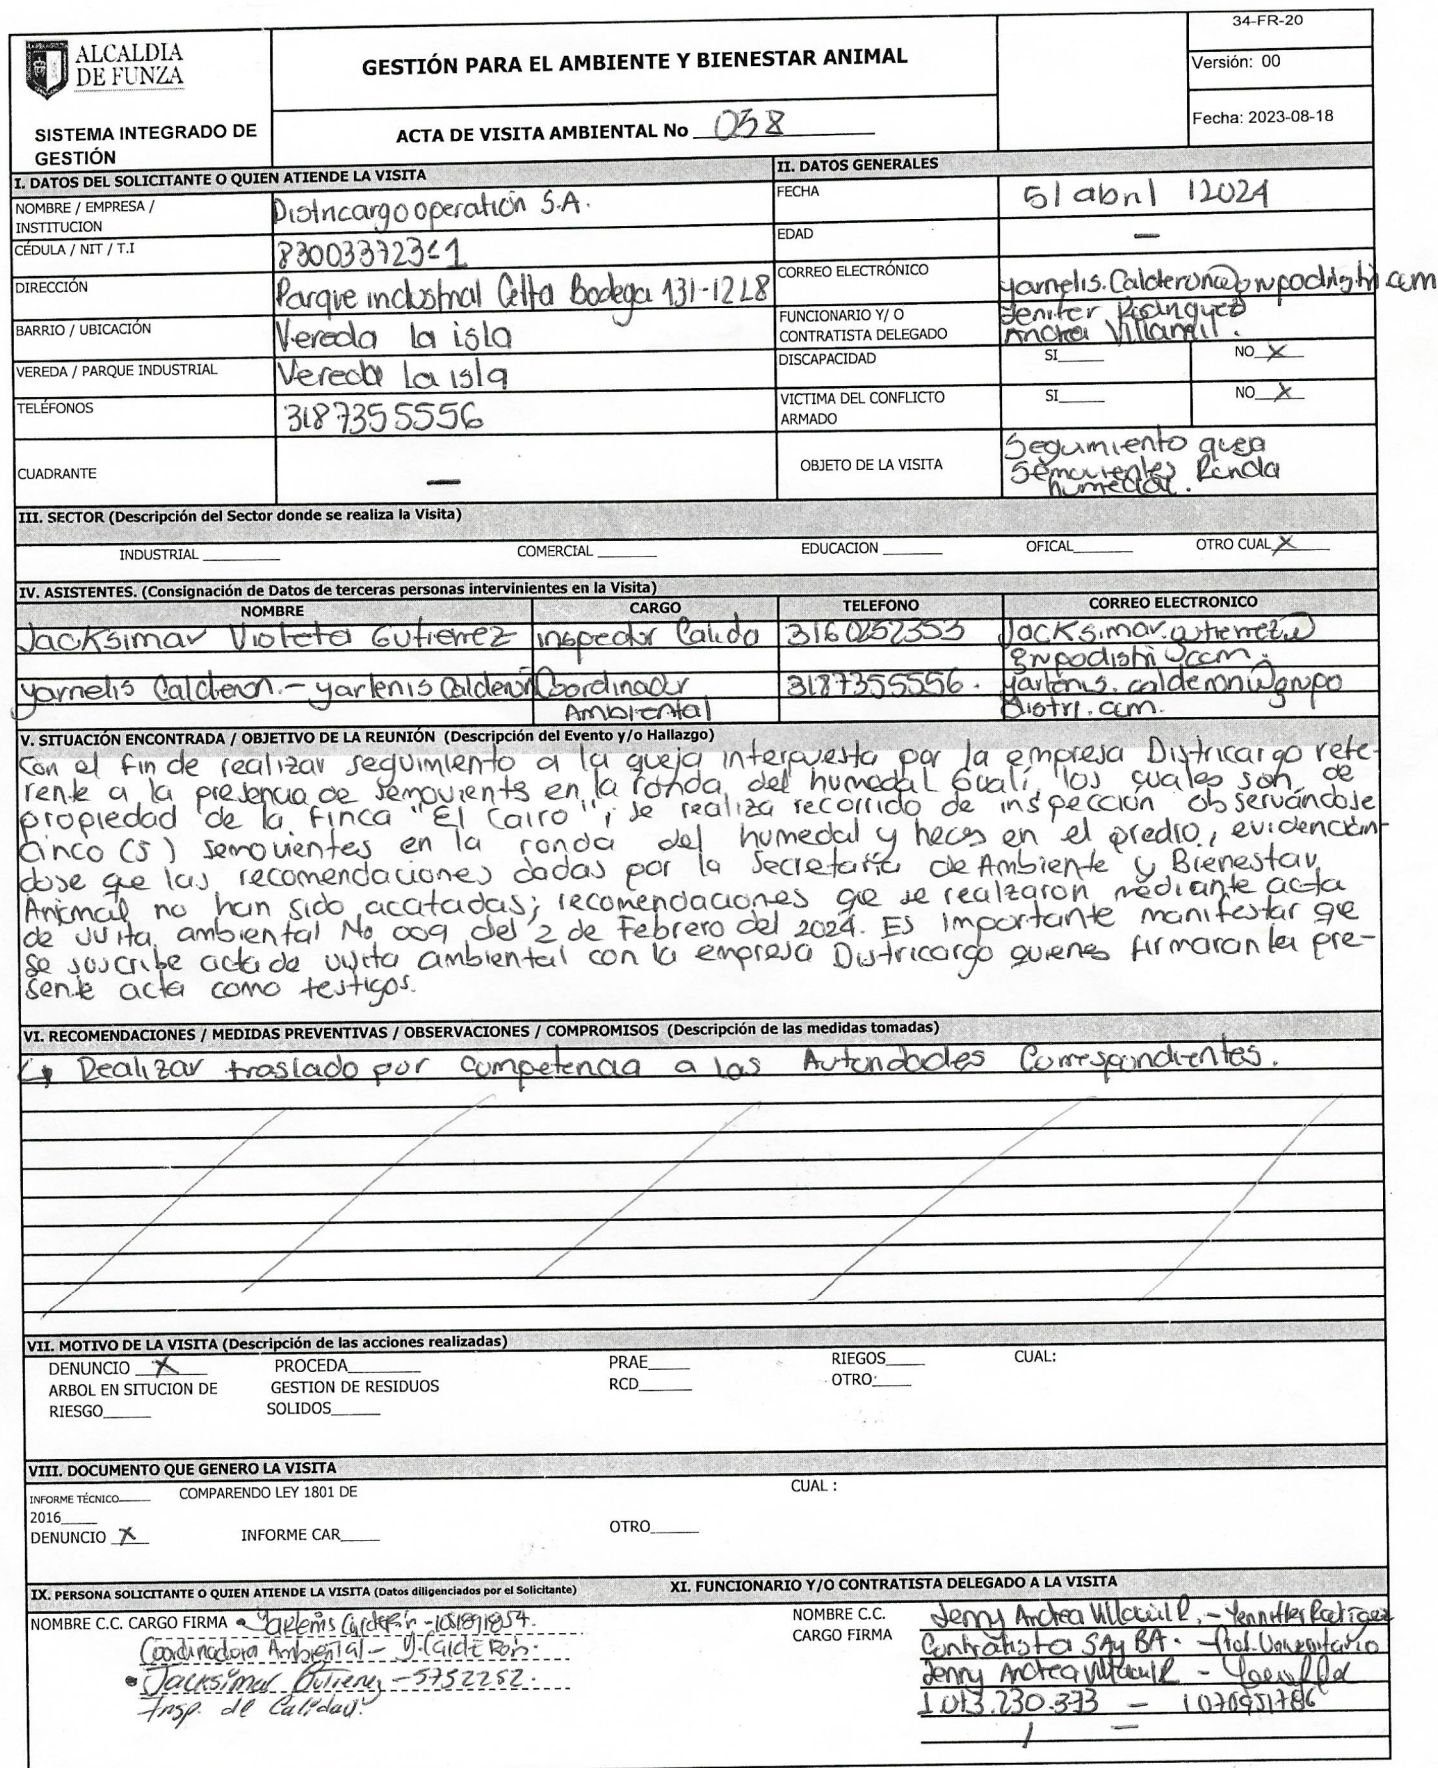 ALCALDIA
DE FUNZA
SISTEMA INTEGRADO DE
GESTIÓN
GESTIÓN PARA EL AMBIENTE Y BIENESTAR ANIMAL
ACTA DE VISITA AMBIENTAL No 058
34-FR-20
Versión: 00
Fecha: 2023-08-18
I. DATOS DEL SOLICITANTE O QUIEN ATIENDE LA VISITA
NOMBRE / EMPRESA /
INSTITUCION
Districargo operation S.A.
CÉDULA / NIT / T.I
830033723-1
DIRECCIÓN
Parque industrial Celta Bodega 131-12L8
BARRIO / UBICACIÓN
Vereda la isla
VEREDA / PARQUE INDUSTRIAL
Vereda la isla
TELÉFONOS
3187355556
CUADRANTE
—
II. DATOS GENERALES
FECHA
5/ abril /2024
EDAD
—
CORREO ELECTRÓNICO
yarnelis.Calderon@grupodistri.com
FUNCIONARIO Y/ O
CONTRATISTA DELEGADO
Jenifer Rodriguez
Andrea Villamil.
DISCAPACIDAD
SI____ NO X
VICTIMA DEL CONFLICTO
ARMADO
SI____ NO X
OBJETO DE LA VISITA
Seguimiento queja
Semovientes Ronda
humedal.
III. SECTOR (Descripción del Sector donde se realiza la Visita)
INDUSTRIAL ____ COMERCIAL ____ EDUCACION ____ OFICAL____ OTRO CUAL X
IV. ASISTENTES. (Consignación de Datos de terceras personas intervinientes en la Visita)
NOMBRE CARGO TELEFONO CORREO ELECTRONICO
Jacksimar Violeta Gutierrez inspector Calida 3160252353 Jacksimar.gutierrez@
grupodistri.com.
yarnelis Calderon. - yarlenis Calderon Coordinador 3187355556. yarlenis.calderon@grupo
Ambiental Distri.com.
V. SITUACIÓN ENCONTRADA / OBJETIVO DE LA REUNIÓN (Descripción del Evento y/o Hallazgo)
Con el fin de realizar seguimiento a la queja interpuesta por la empresa Districargo refe-
rente a la presencia de semovients en la ronda del humedal Gualí, los cuales son de
propiedad de la finca "El Cairo"; se realiza recorrido de inspección observándose
cinco (5) semovientes en la ronda del humedal y heces en el predio, evidencián-
dose que las recomendaciones dadas por la Secretaría de Ambiente y Bienestar
Animal no han sido acatadas; recomendaciones que se realzaron mediante acta
de visita ambiental No 009 del 2 de Febrero del 2024. Es importante manifestar que
se suscribe acta de visita ambiental con la empresa Districargo quienes firmaran la pre-
sente acta como testigos.
VI. RECOMENDACIONES / MEDIDAS PREVENTIVAS / OBSERVACIONES / COMPROMISOS (Descripción de las medidas tomadas)
↳ Realizar traslado por competencia a las Autoridades Correspondientes.
VII. MOTIVO DE LA VISITA (Descripción de las acciones realizadas)
DENUNCIO X PROCEDA____ PRAE____ RIEGOS____ CUAL:
ARBOL EN SITUCION DE GESTION DE RESIDUOS RCD____ OTRO:____
RIESGO____ SOLIDOS____
VIII. DOCUMENTO QUE GENERO LA VISITA
INFORME TÉCNICO____ COMPARENDO LEY 1801 DE CUAL :
2016____
DENUNCIO X INFORME CAR____ OTRO____
IX. PERSONA SOLICITANTE O QUIEN ATIENDE LA VISITA (Datos diligenciados por el Solicitante)
NOMBRE C.C. CARGO FIRMA • Yarlenis Calderón -
Coordinadora Ambiental - Y. Calderon.
• Jacksimar Gutierrez - 5752252.
Insp. de Calidad.
XI. FUNCIONARIO Y/O CONTRATISTA DELEGADO A LA VISITA
NOMBRE C.C.
CARGO FIRMA
Jenny Andrea Villamil R. - Yennifer Rodriguez
Contratista SAyBA. - Prof. Universitario
Jenny Andrea Villamil R -
1.013.230.373 — 1070951786
/ —